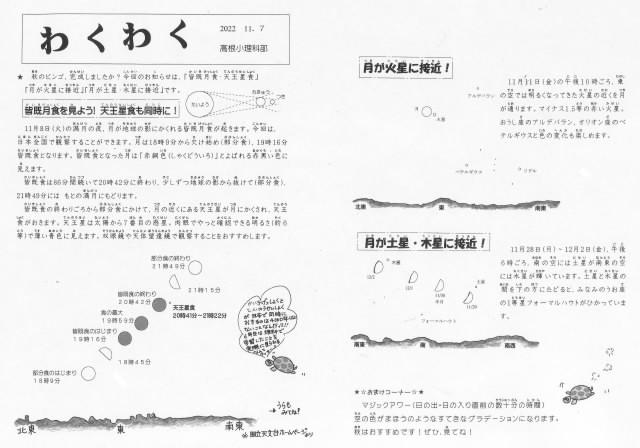 わくわく
2022 11. 7
高根小理科部
★ 秋のビンゴ、完成しましたか？今回のお知らせは、「皆既月食・天王星食」
「月が火星に接近」「月が土星・木星に接近」です。
皆既月食を見よう！ 天王星食も同時に！
たいよう
ちきゅう
つき
11月8日(火)の満月の夜、月が地球の影にかくれる皆既月食が起きます。今回は、
日本全国で観察することができます。月は18時9分から欠け始め(部分食)、19時16分
皆既月食となります。皆既月食となった月は「赤銅色(しゃくどういろ)」とよばれる赤黒い色に
見えます。
皆既食は86分間続いて20時42分に終わり、少しずつ地球の影から抜けて(部分食)、
21時49分には もとの満月にもどります。
皆既食の終わりごろから部分食にかけて、月の近くにある天王星が月にかくされ、天王
星食がおきます。天王星は太陽から7番目の惑星。肉眼でやっと確認できる明るさ(約6
等)で薄い青色に見えます。双眼鏡や天体望遠鏡で観察することをおすすめします。
部分食の終わり
21時49分
21時15分
皆既食の終わり
20時42分
天王星食
20時41分～21時22分
食の最大
19時59分
皆既食のはじまり
19時16分
18時45分
部分食のはじまり
18時9分
北東
東
南東
うらも
みてね！
国立天文台ホームページより
月が火星に接近！
月
火星
アルデバラン
ベテルギウス
リゲル
北東
東
南東
11月11日(金)の午後10時ごろ、東
の空では明るくなってきた火星の近くを月
が通ります。マイナス1.5等の赤い火星。
おうし座のアルデバラン、オリオン座のベ
テルギウスと色の変化も楽しめます。
月が土星・木星に接近！
木星
土星
12/2
11/29
11/28
フォーマルハウト
南東
南
南西
11月28日(月)～12月2日(金)、午後
6時ごろ、南の空には土星が南東の空
には木星が輝いています。土星と木星の
間を下の方にたどると、みなみのうお座
の1等星フォーマルハウトがひかっていま
す。
☆☆おまけコーナー☆☆
マジックアワー(日の出・日の入り直前の数十分の時間)
空の色がまほうのようなすてきなグラデーションになります。
秋はおすすめです！ぜひ、見てね！